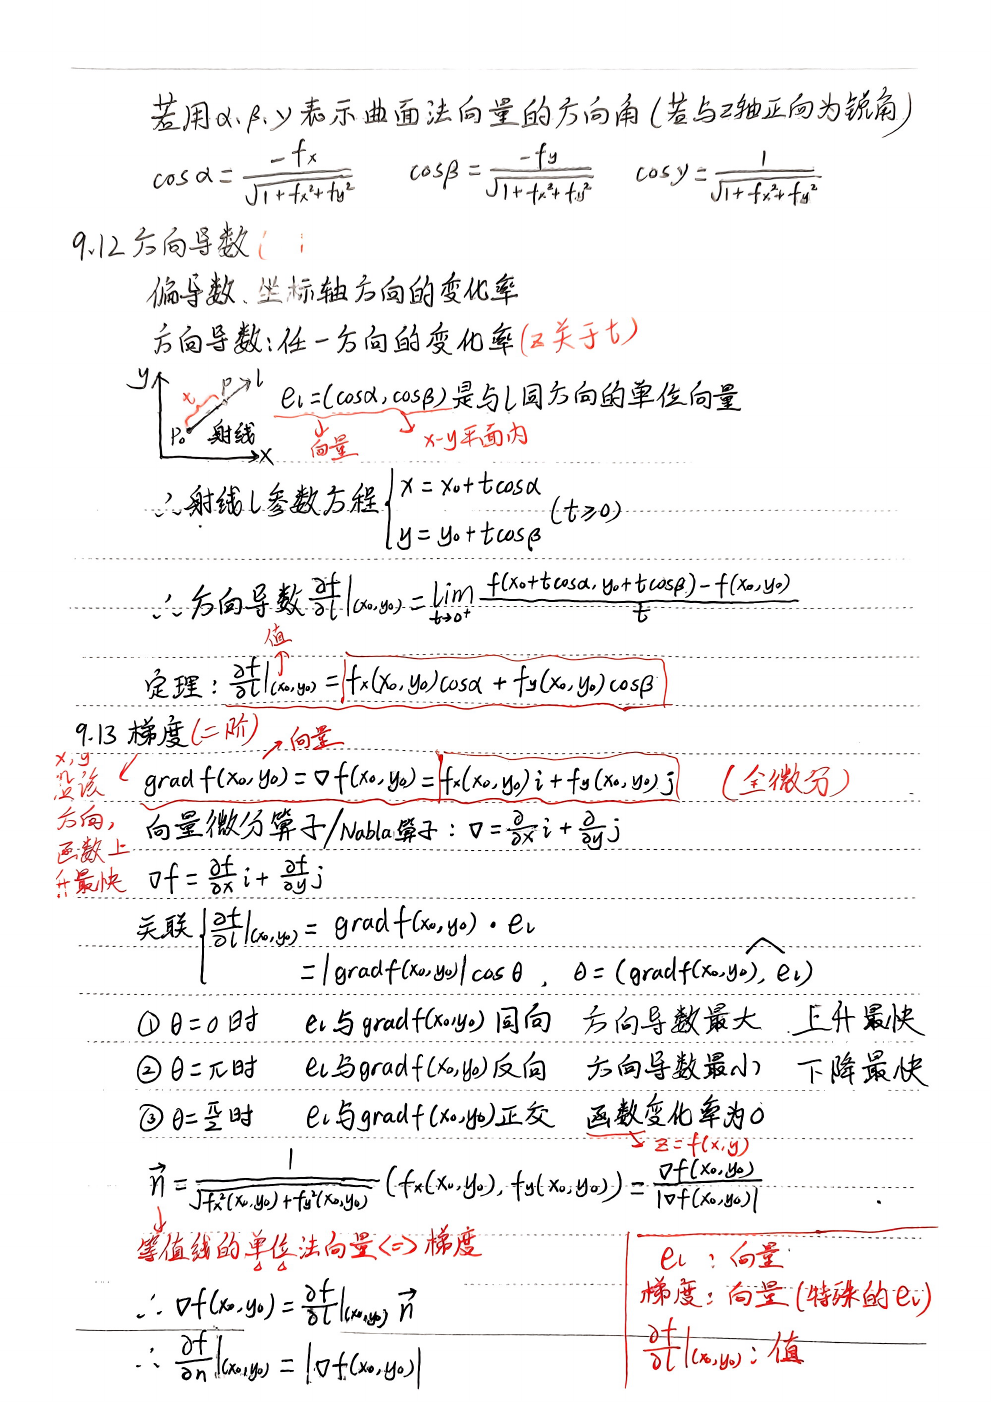 若用α、β、γ表示曲面法向量的方向角(若与z轴正向为锐角)
cosα = -fx / √(1+fx²+fy²)  cosβ = -fy / √(1+fx²+fy²)  cosγ = 1 / √(1+fx²+fy²)
9.12 方向导数
偏导数、坐标轴方向的变化率
方向导数:任一方向的变化率(z关于t)
y t P l P₀ 射线 x
eι=(cosα,cosβ)是与l同方向的单位向量
向量 x-y平面内
∴射线l参数方程 { x = x₀+tcosα
y = y₀+tcosβ (t≥0)
∴方向导数 ∂f/∂l|(x₀,y₀) = lim t→0⁺ [f(x₀+tcosα, y₀+tcosβ)-f(x₀,y₀)] / t
值
定理: ∂f/∂l|(x₀,y₀) = fx(x₀,y₀)cosα + fy(x₀,y₀)cosβ
9.13 梯度(二阶) 向量
grad f(x₀,y₀) = ∇f(x₀,y₀) = fx(x₀,y₀)i + fy(x₀,y₀)j (全微分)
x,y
沿该
方向,
函数上
升最快
向量微分算子/Nabla算子: ∇ = ∂/∂x i + ∂/∂y j
∇f = ∂f/∂x i + ∂f/∂y j
关联 { ∂f/∂l|(x₀,y₀) = gradf(x₀,y₀)·eι
= |gradf(x₀,y₀)|cosθ , θ = (gradf(x₀,y₀), eι)
① θ=0时 eι与gradf(x₀,y₀)同向 方向导数最大 上升最快
② θ=π时 eι与gradf(x₀,y₀)反向 方向导数最小 下降最快
③ θ=π/2时 eι与gradf(x₀,y₀)正交 函数变化率为0
z=f(x,y)
n⃗ = 1 / √(fx²(x₀,y₀)+fy²(x₀,y₀)) (fx(x₀,y₀), fy(x₀,y₀)) = ∇f(x₀,y₀) / |∇f(x₀,y₀)|
等值线的单位法向量<=>梯度
∴ ∇f(x₀,y₀) = ∂f/∂l|(x₀,y₀) n⃗
∴ ∂f/∂n|(x₀,y₀) = |∇f(x₀,y₀)|
eι : 向量
梯度: 向量(特殊的eι)
∂f/∂l|(x₀,y₀) : 值